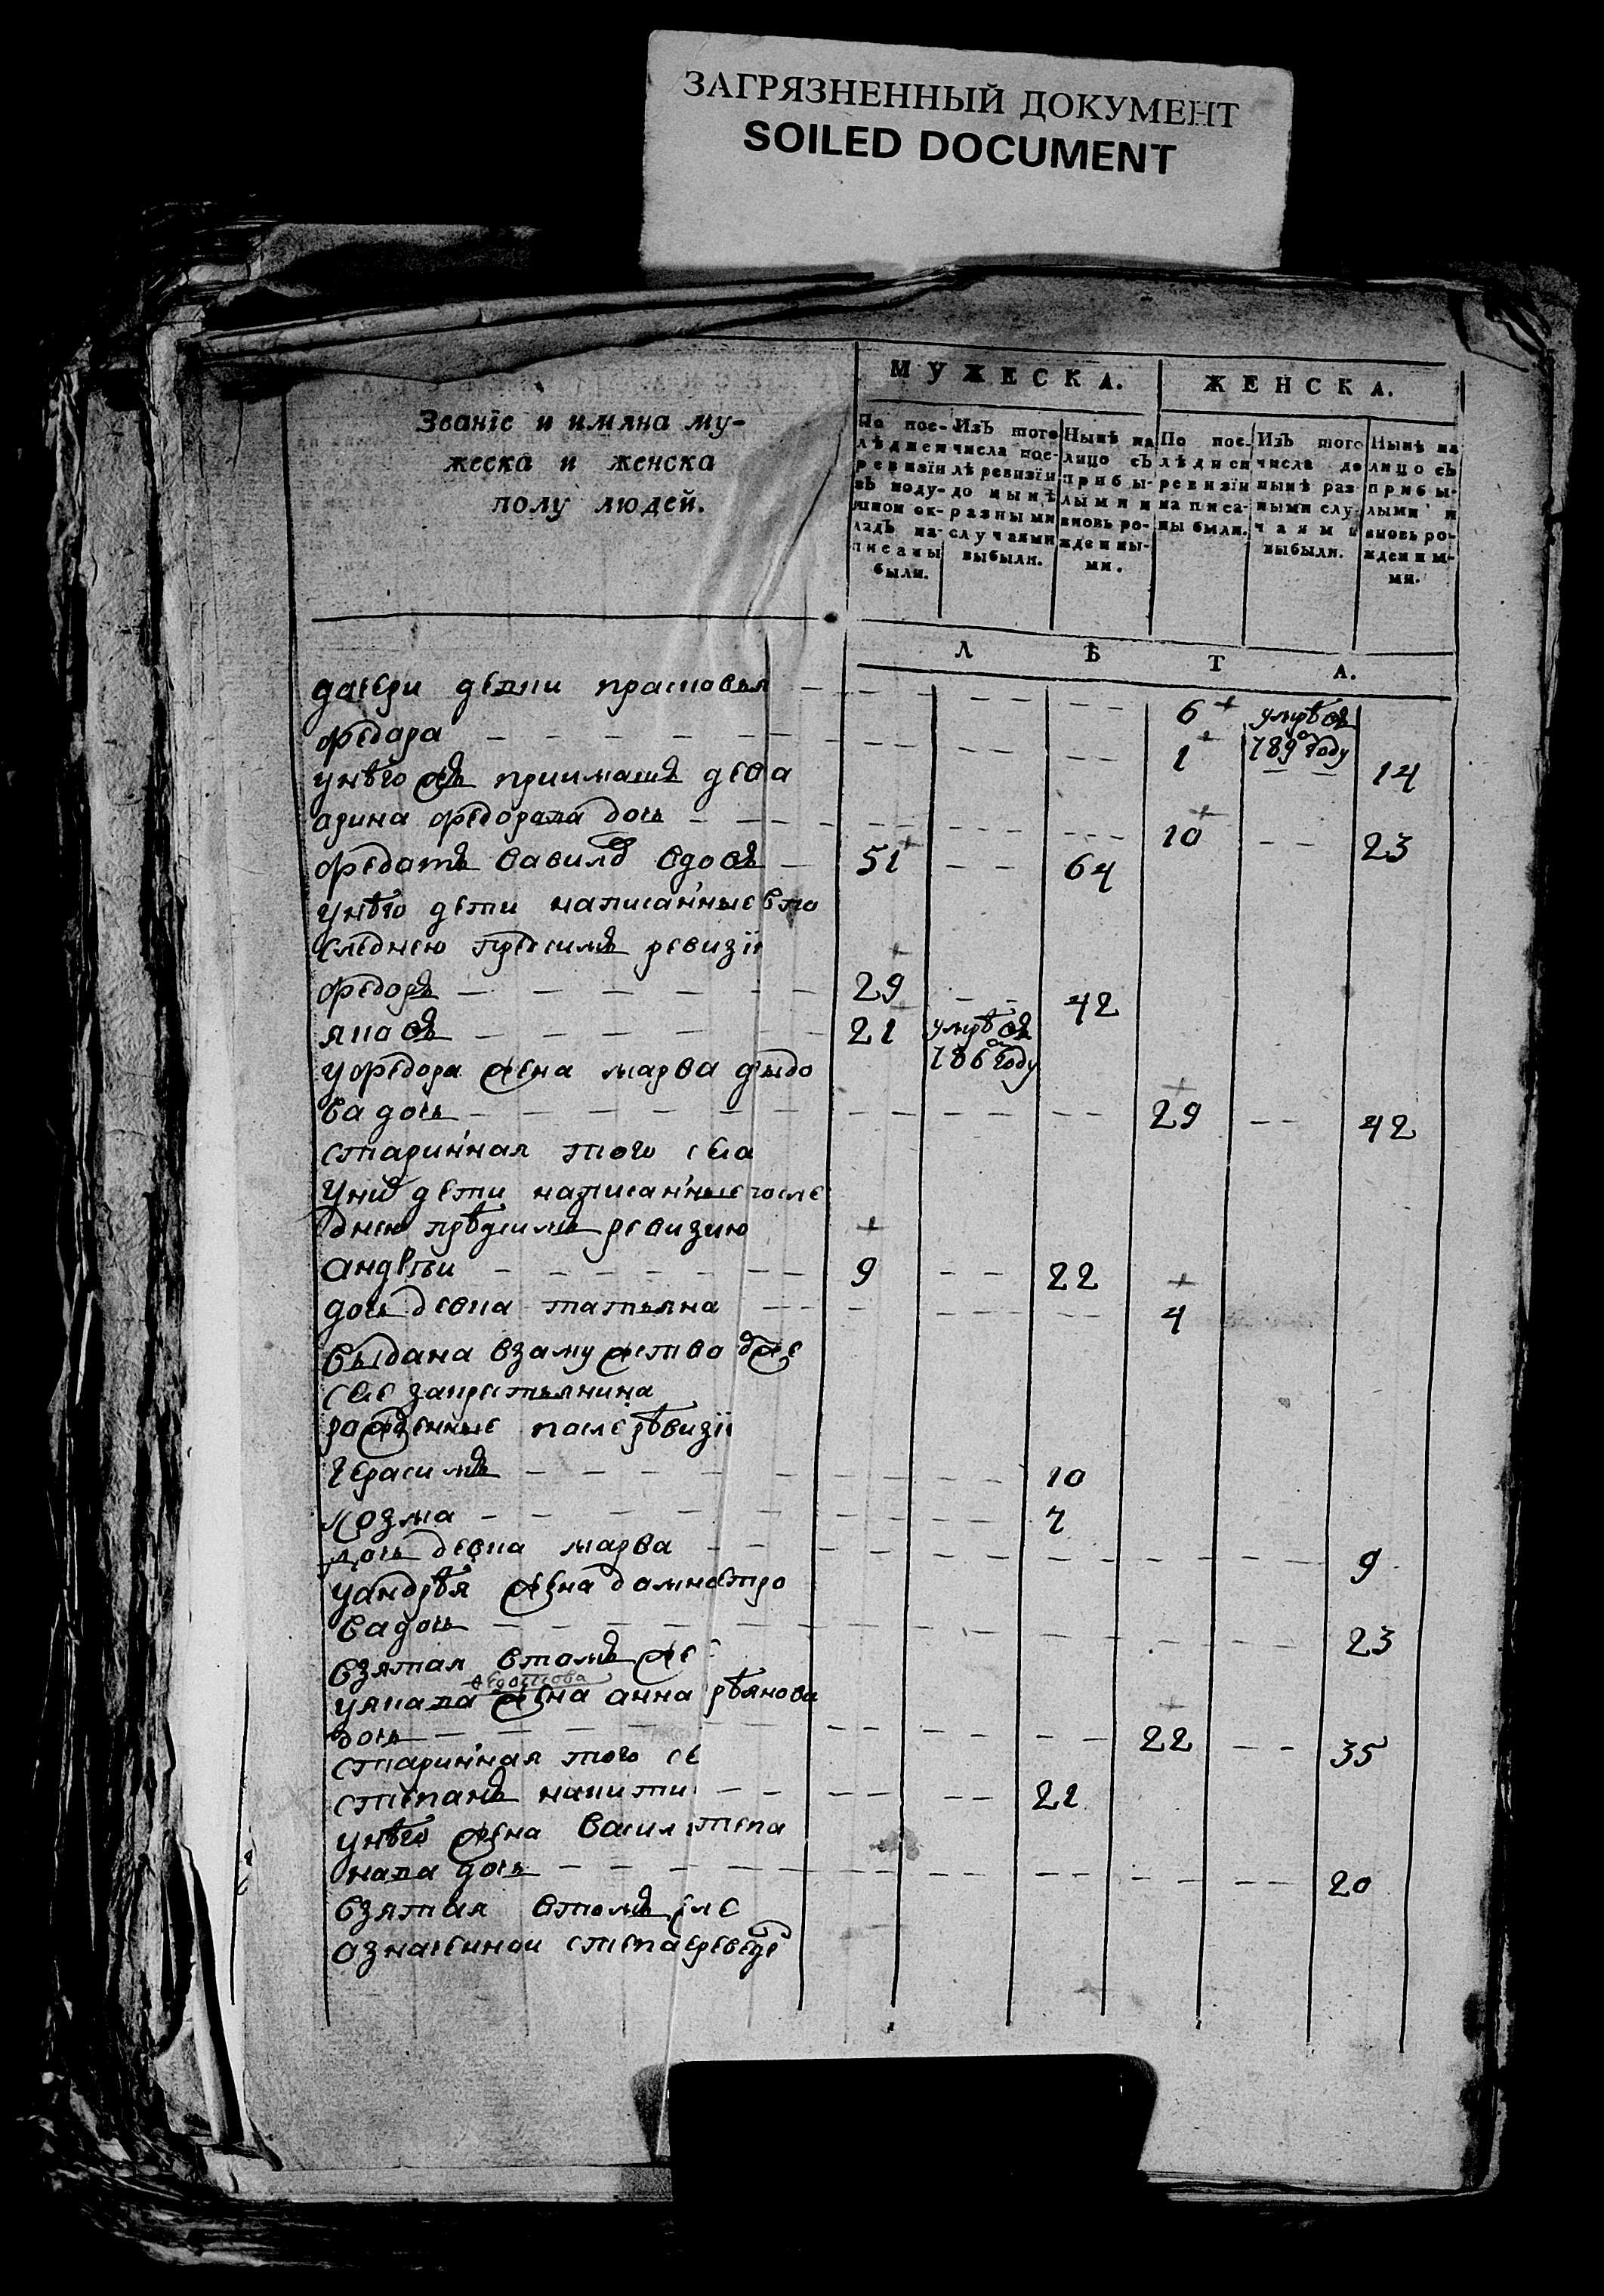 ЗАГРЯЗНЕННЫЙ ДОКУМЕНТ
SOILED DOCUMENT
Званїе и имяна му-
жеска и женска
полу людей.
МУЖЕСКА.
ЖЕНСКА.
По пос-
лѣдней
ревизїи
въ поду-
шном ок-
ладъ на-
писаны
были.
Изъ того
числа пос-
лѣ ревизїи
до нынѣ
разными
случаями
выбыли.
Нынѣ на
лицо съ
прибы-
лыми и
вновь ро-
жденны-
ми.
По пос-
лѣднеи
ревизїи
написа-
ны были.
Изъ того
числа до
нынѣ раз
ными слу-
чаями
выбыли.
Нынѣ на
лицо съ
прибы-
лыми и
вновь ро-
жденны-
ми.
ЛѢТА.
дочери девки прасковья 6 умрѣ въ
федора 1 789 году 14
у нѣго жъ приимашъ девка
арина федорова дочь 10 23
федотъ вавилов вдовъ 51 64
у нѣго дети написанные в по
следнею пред симъ ревизїи
федоръ 29 42
яковъ 21 умрѣ въ
786 году
у федора жена марва
ва дочь 29 42
старинная того села
у них дети написанные после
днею прѣд симъ ревизию
андреи 9 22
дочь девка татьяна 4
выдана в замужство
селе за крестьянина
рожденные после рѣвизїи
герасимъ 10
козма 7
дочь девка марва 9
у андрѣя жена домна петро
ва дочь 23
взятая в томъ же
у якова жена анна
дочь 22 35
старинная того се
степанъ никити 21
у нѣго жена васил степа
нова дочь 20
взятая в томъ селе